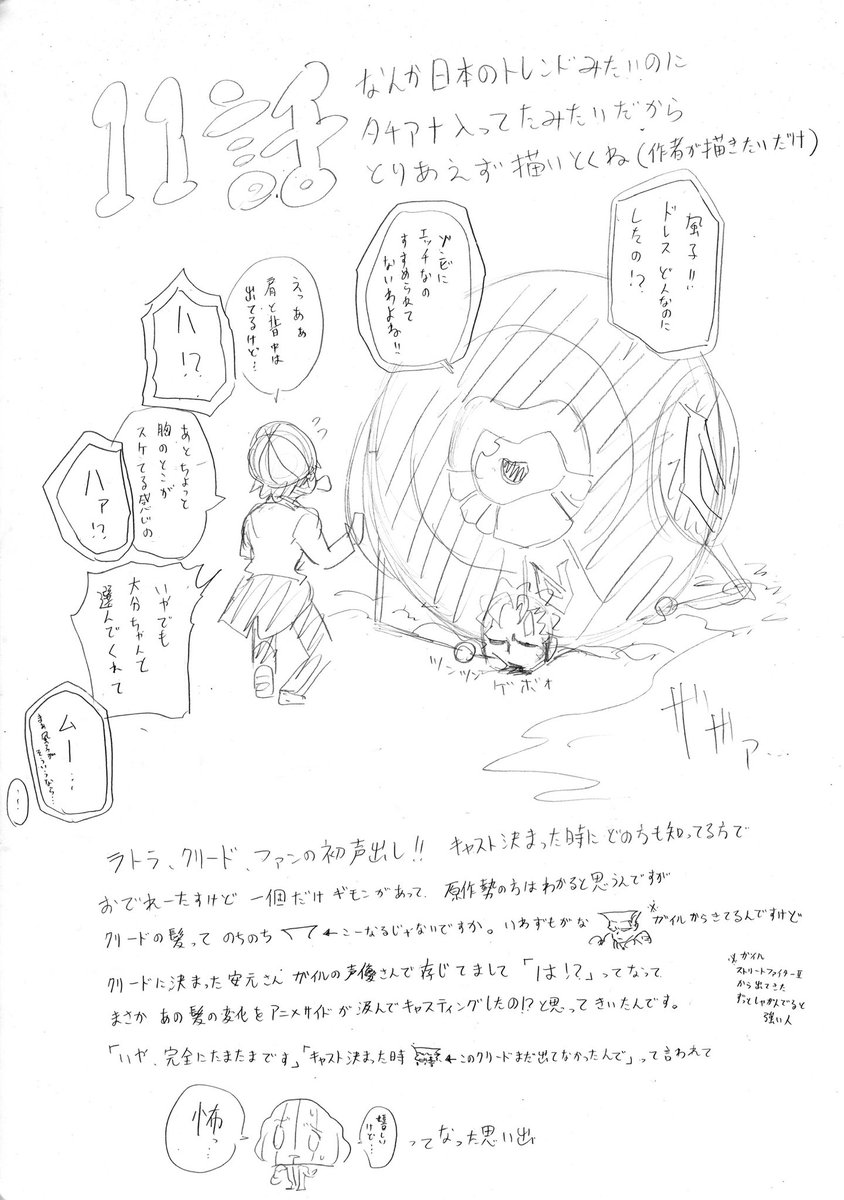 11話
なんか日本のトレンドみたいのに
タチアナ入ってたみたいだから
とりあえず描いとくね(作者が描きたいだけ)
風子!!
ドレスどんなのに
したの!?
ゾンビに
エッチなの
すすめられて
ないわよね!!
えっあぁ
肩と背中は
出てるけど…
ハ!?
あとちょっと
胸のとこが
スケてる感じの
ハァ!?
いやでも
大分ちゃんと
選んでくれて
ムー…
ツンツン
ゲボォ
ザザァ…
ラトラ、クリード、ファンの初声出し!! キャスト決まった時にどの方も知ってる方で
おでれーたすけど 一個だけギモンがあって、原作勢の方はわかると思うんですが
クリードの髪って のちのち ←こーなるじゃないですか。いわずもがな ※ガイルからきてるんですけど
クリードに決まった安元さん ガイルの声優さんで存じてまして「は!?」ってなって
まさか あの髪の変化をアニメサイドが汲んでキャスティングしたの!?と思ってきいたんです。
「いや、完全にたまたまです」「キャスト決まった時 ←このクリードまだ出てなかったんで」って言われて
※ガイル
ストリートファイターⅡ
から出てきた
ずっとしゃがんでると
強い人
怖っ…
嬉しい
けど…
ってなった思い出